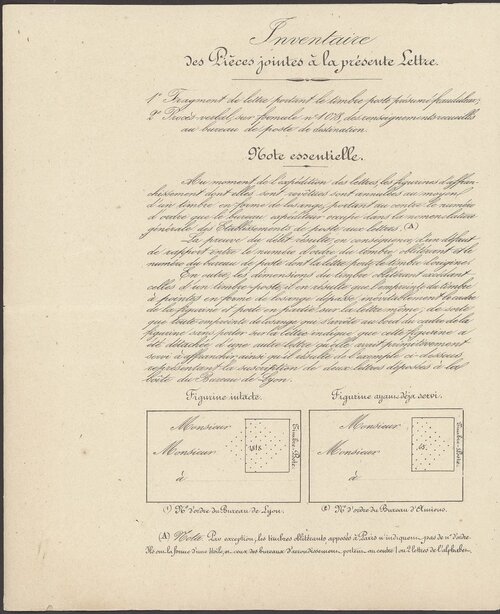 Inventaire
des Pièces jointes à la présente Lettre.
1º Fragment de lettre portant le timbre poste présumé frauduleux;
2º Procès verbal, sur formule nº 1078, des renseignements recueillis
au bureau de poste de destination.
Note essentielle.
Au moment de l'expédition des lettres, les figurines d'affran-
chissement dont elles sont revêtues sont annulées au moyen
d'un timbre en forme de losange, portant au centre le numéro
d'ordre que le bureau expéditeur occupe dans la nomenclature
générale des Etablissements de poste aux lettres. (A)
La preuve du délit résulte, en conséquence, d'un défaut
de rapport entre le numéro d'ordre du timbre oblitérant et le
numéro du bureau de poste dont la lettre porte le timbre d'origine.
En outre, les dimensions du timbre oblitérant excédant
celles d'un timbre-poste, il en résulte que l'empreinte du timbre
à pointes en forme de losange dépasse inévitablement le cadre
de la figurine et porte en partie sur la lettre même, de sorte
que toute empreinte de losange qui s'arrête au bord du cadre de la
figurine sans porter sur la lettre indique que cette figurine a
été détachée d'une autre lettre qu'elle avait primitivement
servi à affranchir, ainsi qu'il résulte de l'exemple ci-dessous
représentant la suscription de deux lettres déposées à la
boîte du Bureau de Lyon.
Figurine intacte.
Figurine ayant déjà servi.
Monsieur
Monsieur
à
1818.
Timbre-Poste.
Monsieur
Monsieur
à
Timbre-Poste.
(1) Nº d'ordre du Bureau de Lyon.
(2) Nº d'ordre du Bureau d'Amiens.
(A) Note. Par exception, les timbres oblitérants apposés à Paris n'indiquent pas de nº d'ordre.
Ils ont la forme d'une étoile, et ceux des bureaux d'arrondissement portent au centre 1 ou 2 lettres de l'alphabet.